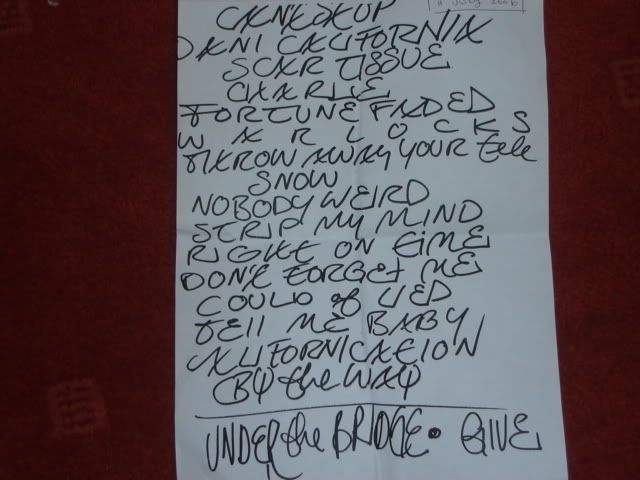 11 July 2006
DANI CALIFORNIA
SCAR TISSUE
CHARLIE
FORTUNE FADED
WARLOCKS
THROW AWAY YOUR tele
SNOW
NOBODY WEIRD
STRIP MY MIND
RIGHT ON TIME
DON'T FORGET ME
COULD of LIED
TEll ME BABY
CALIFORNICATION
BY the WAY
UNDER the BRIDGE • GIVE